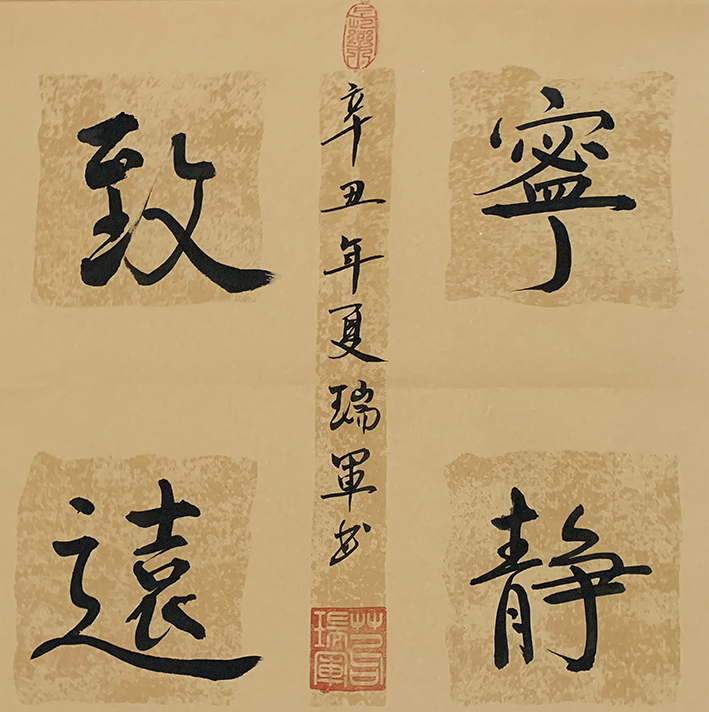 寧靜
致遠
辛丑年夏瑞軍书
長樂